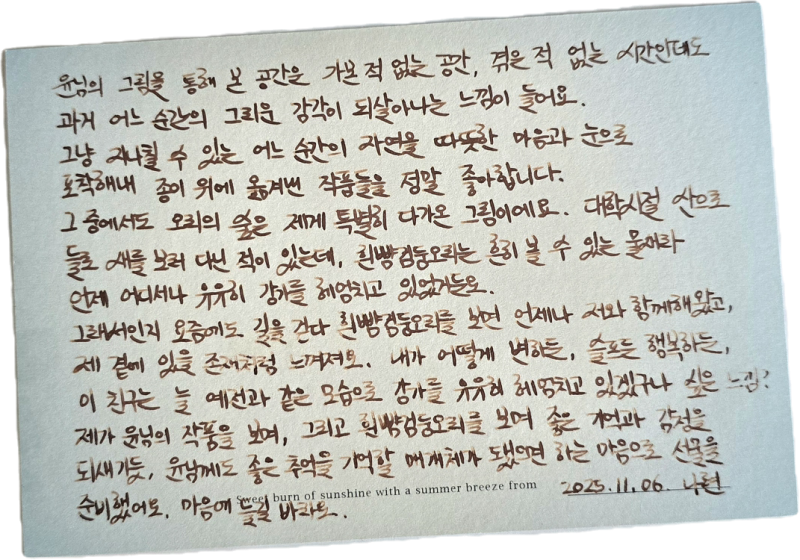 윤님의 그림을 통해 본 공간은 가본 적 없는 공간, 겪은 적 없는 시간인데도
과거 어느 순간의 그리운 감각이 되살아나는 느낌이 들어요.
그냥 지나칠 수 있는 어느 순간의 자연을 따뜻한 마음과 눈으로
포착해내 종이 위에 옮겨낸 작품들을 정말 좋아합니다.
그 중에서도 오리의 숲은 제게 특별히 다가온 그림이에요. 대학시절 산으로
들로 새를 보러 다닌 적이 있는데, 흰뺨검둥오리는 흔히 볼 수 있는 물새라
언제 어디서나 유유히 강가를 헤엄치고 있었거든요.
그래서인지 요즘에도 길을 걷다 흰뺨검둥오리를 보면 언제나 저와 함께해왔고,
제 곁에 있을 존재처럼 느껴져요. 내가 어떻게 변하든, 슬프든 행복하든,
이 친구는 늘 예전과 같은 모습으로 강가를 유유히 헤엄치고 있겠구나 싶은 느낌?
제가 윤님의 작품을 보며, 그리고 흰뺨검둥오리를 보며 좋은 기억과 감정을
되새기듯, 윤님께도 좋은 추억을 기억할 매개체가 됐으면 하는 마음으로 선물을
준비했어요. 마음에 들길 바라요.
Sweet burn of sunshine with a summer breeze from
2025. 11. 06. 나현